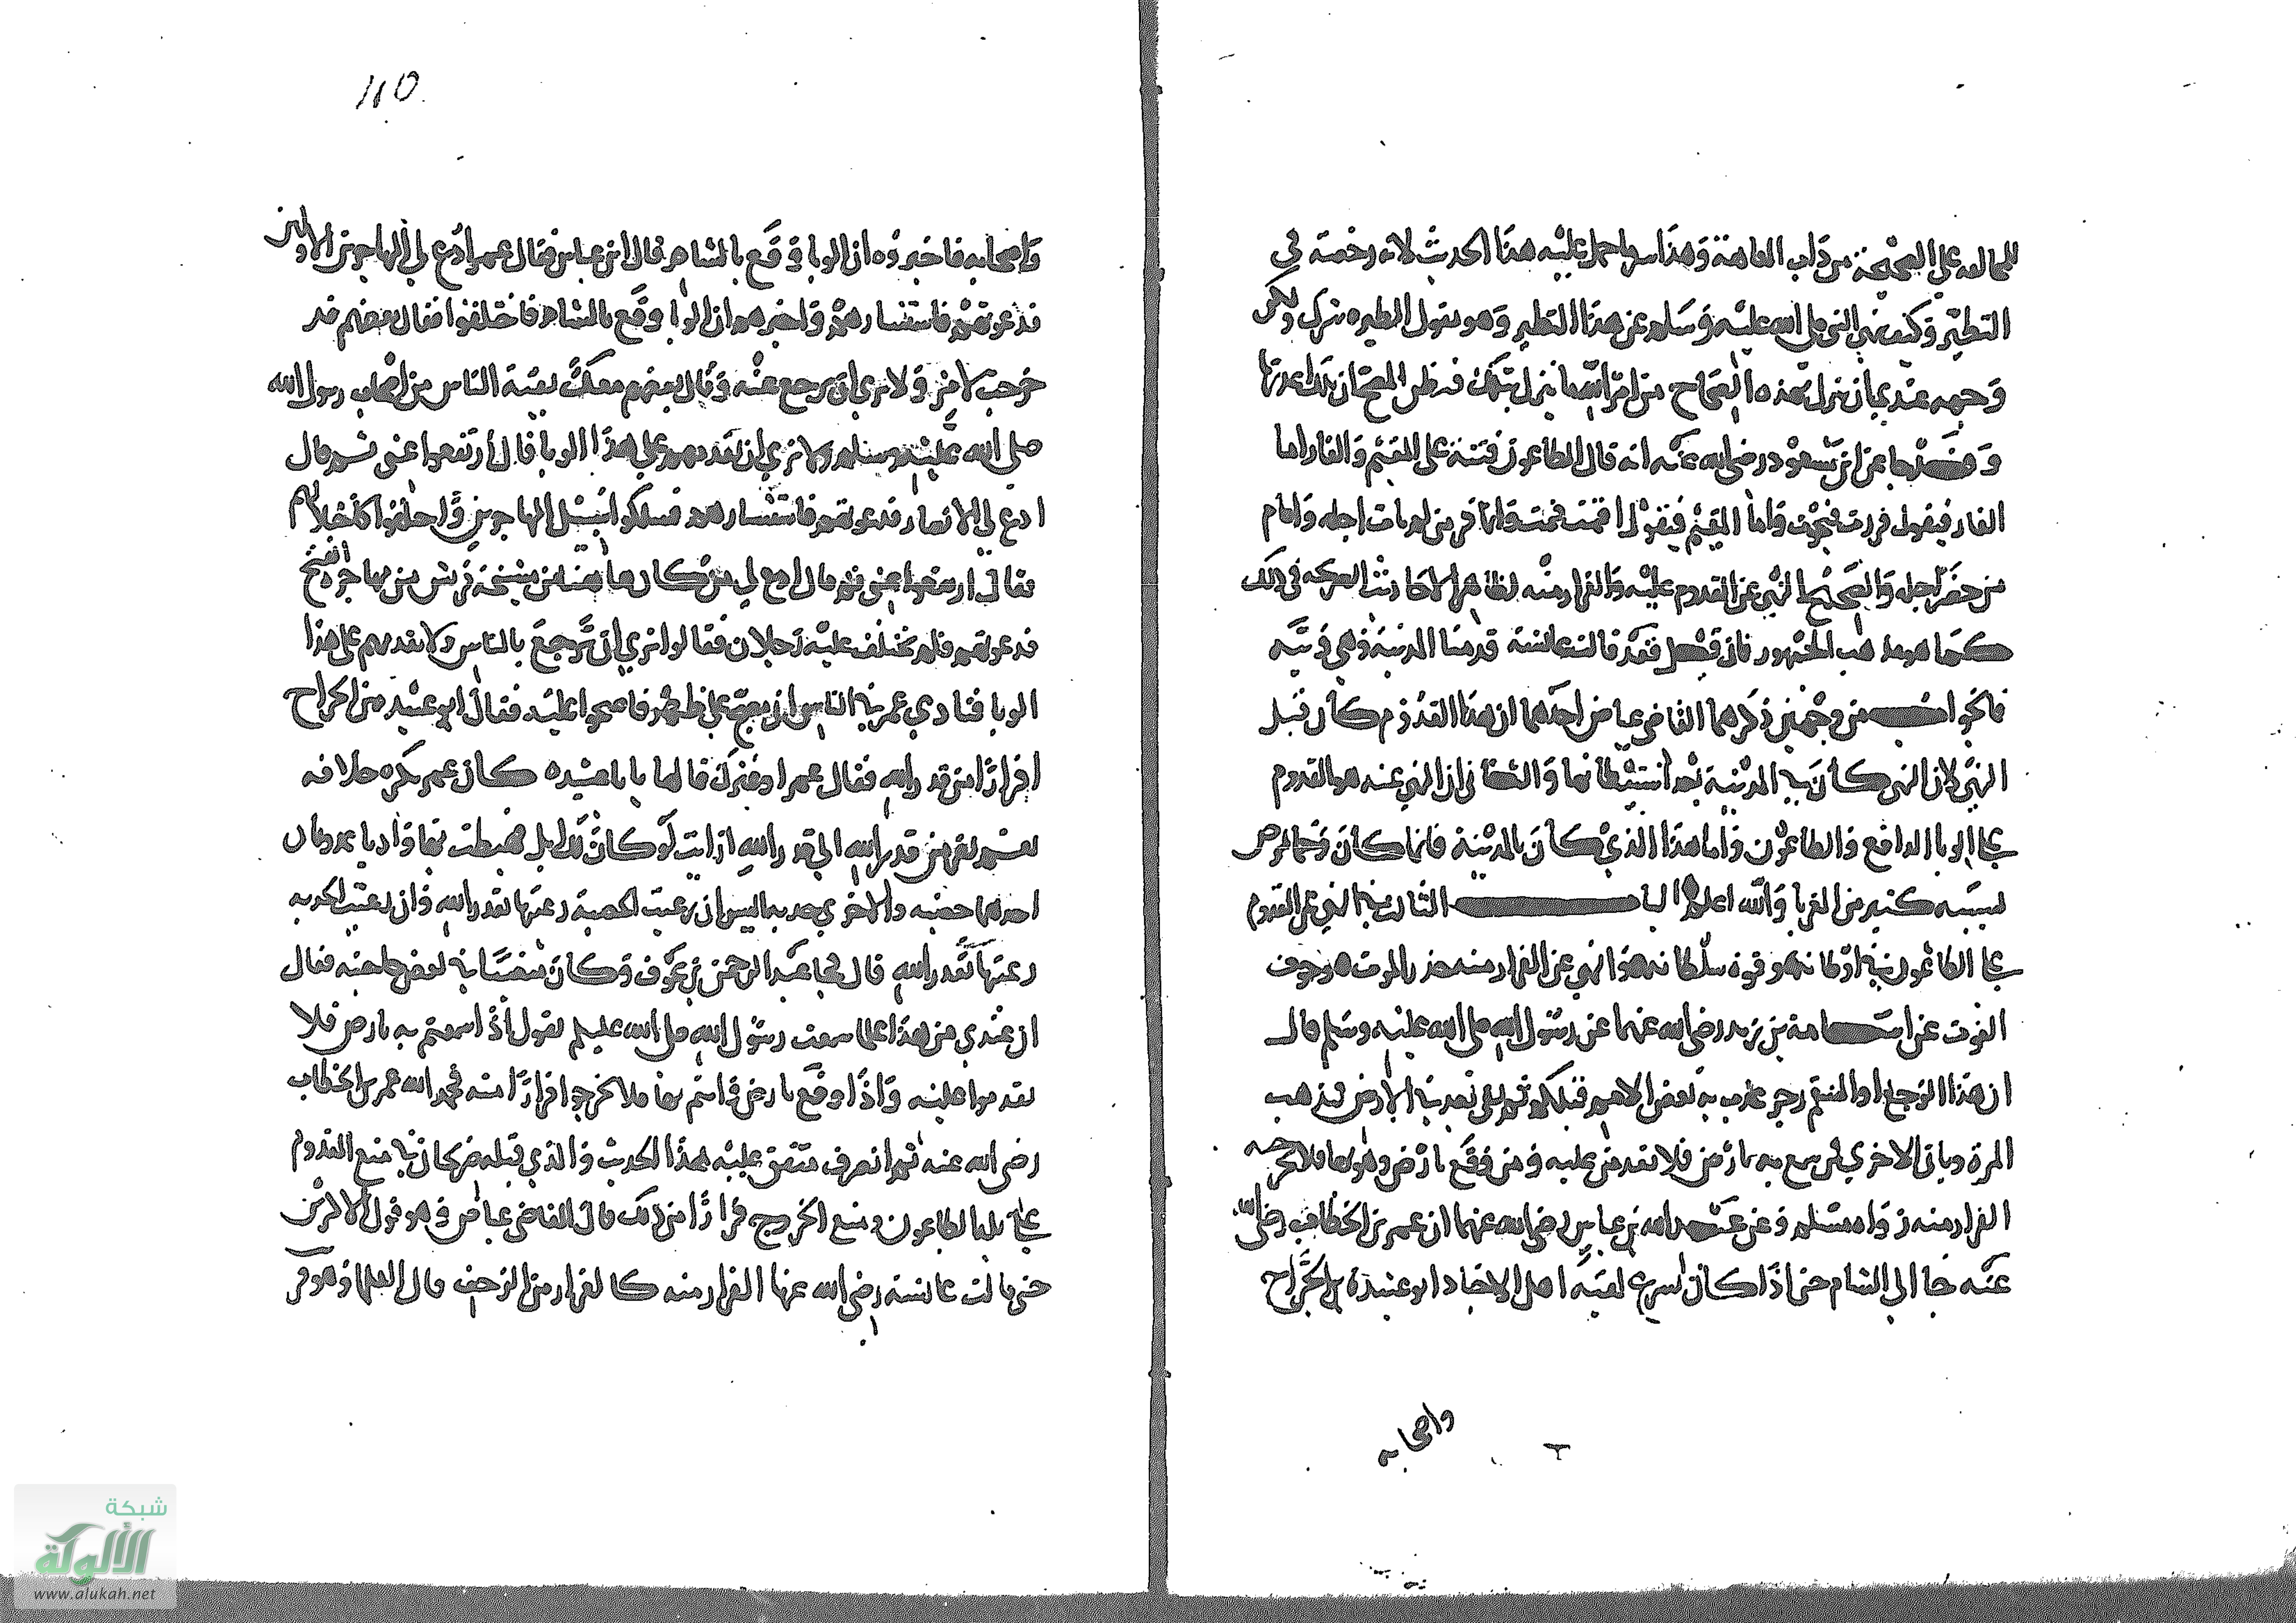 للمخالفه على الصحيحة من ذات العاهة وهذا سوا حمل عليه هذا الحديث لانه رخصة في
التطير وكيف نهى النبي صلى الله عليه وسلم عن هذا التطير وهو يقول الطيره شرك ولكن
وجهه عندي ان ينزل بهذه الصحاح من امر الله ما نزل بتلك فيظن المصح ان تلك اعدتها
عن ابن مسعود رضي الله عنه انه قال الطاعون فتنة على المقيم والفار اما
الفار فيقول فررت فنجوت واما المقيم فيقول اقمت فمت وانما فر من لم يات اجله واقام
من حضر اجله والصحيح النهي عن القدوم عليه والفرار منه لظاهر الاحاديث الصريحه في ذلك
كما هو مذهب الجمهور فان قيل فقد قالت عائشة قدمنا المدينة وهي وبيه
فالجواب من وجهين ذكرهما القاضي عياض احدهما ان هذا القدوم كان قبل
النهي لان النهي كان في المدينة بعد استيطانها والثاني ان النهي عنه هو القدوم
على الوبا الدافع والطاعون واما هذا الذي كان بالمدينة فانما كان وخما لمرض
بسببه كثير من الغربا والله اعلم الباب الثالث في النهي عن القدوم
على الطاعون في اوانه وقوة سلطانه والنهي عن الفرار منه حذر الموت وخوف
الفوت عن اسامة بن زيد رضي الله عنهما عن رسول الله صلى الله عليه وسلم قال
ان هذا الوجع او السقم رجز عذب به بعض الامم قبلكم ثم بقي بعد في الارض فيذهب
المرة وياتي الاخري فمن سمع به بارض فلا يقدمن عليه ومن وقع بارض وهو بها فلا يخرجنه
الفرار منه رواه مسلم وعن عبد الله بن عباس رضي الله عنهما ان عمر بن الخطاب رضي الله
عنه جا الي الشام حتي اذا كان بسرغ لقيه اهل الاجناد ابو عبيدة بن الجراح
واصحابه
١١٥
واصحابه فاخبروه ان الوبا قد وقع بالشام قال ابن عباس فقال عمر ادع لي المهاجرين الاولين
فدعوتهم فاستشارهم واخبرهم ان الوبا وقع بالشام فاختلفوا فقال بعضهم قد
خرجت لامر ولا نري ان ترجع عنه وقال بعضهم معك بقية الناس من اصحاب رسول الله
صلي الله عليه وسلم ولا نري ان تقدمهم على هذا الوبا قال ارتفعوا عني ثم قال
ادع لي الانصار فدعوتهم فاستشارهم فسلكوا سبيل المهاجرين واختلفوا كاختلافهم
فقال ارتفعوا عني ثم قال ادع لي من كان هاهنا من مشيخة قريش من مهاجرة الفتح
فدعوتهم فلم يختلف عليه رجلان فقالوا نري ان ترجع بالناس ولا تقدمهم على هذا
الوبا فنادي عمر في الناس اني مصبح على ظهر فاصبحوا عليه فقال ابو عبيدة بن الجراح
افرارا من قدر الله فقال عمر لو غيرك قالها يا ابا عبيده كان عمر يكره خلافه
نعم نفر من قدر الله الي قدر الله ارايت لو كان لك ابل فهبطت بها واديا له عدوتان
احدهما خصبه والاخري جدبه اليس ان رعيت الخصبة رعيتها بقدر الله وان رعيت الجدبه
رعيتها بقدر الله قال فجا عبد الرحمن بن عوف وكان متغيبا في بعض حاجته فقال
ان عندي من هذا علما سمعت رسول الله صلى الله عليه وسلم يقول اذا سمعتم به بارض فلا
تقدموا عليه واذا وقع بارض وانتم بها فلا تخرجوا فرارا منه فحمد الله عمر بن الخطاب
رضي الله عنه ثم انصرف متفق عليه هذا الحديث والذي قبله صريحان في منع القدوم
على بلد الطاعون ومنع الخروج فرارا من ذلك قال القاضي عياض وهو قول الاكثرين
حتي قالت عائشة رضي الله عنها الفرار منه كالفرار من الزحف قال العلما وهو قر
شبكة
الألوكة
www.alukah.net